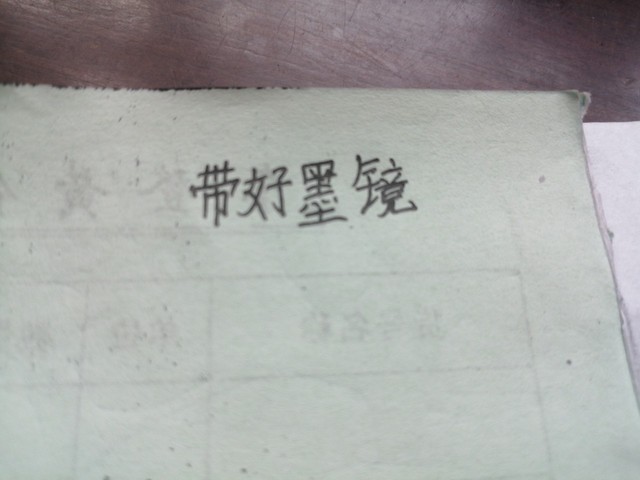 带好墨镜